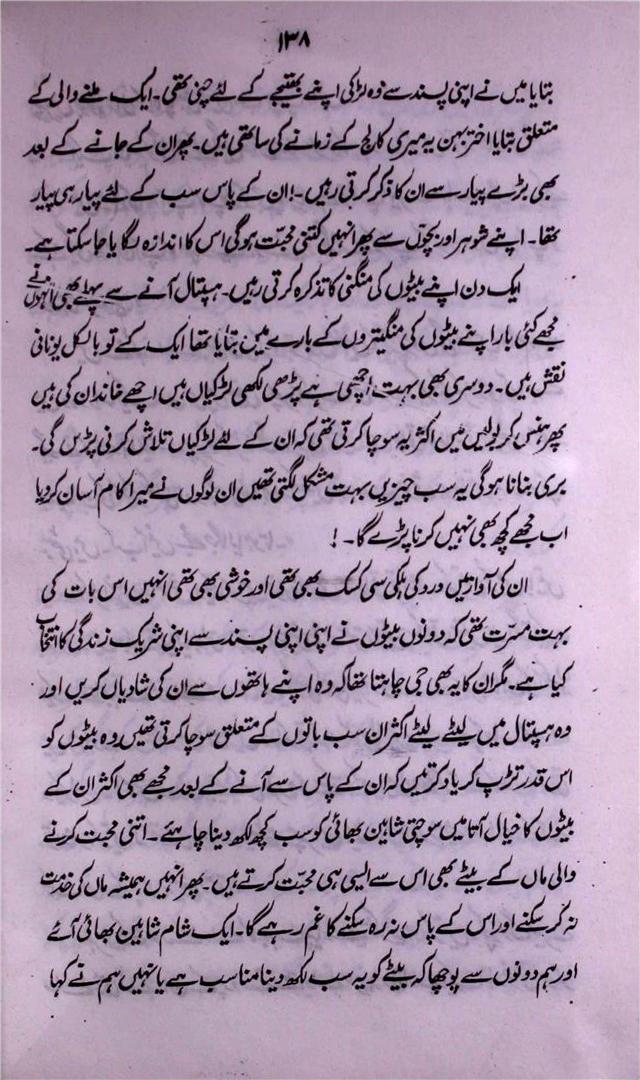 ۱۳۸
بتایا میں نے اپنی پسند سے وہ لڑکی اپنے بھتیجے کے لئے چنی تھی۔ ایک ملنے والی کے
متعلق بتایا اختر بہن یہ میری کالج کے زمانے کی ساتھی ہیں۔ پھر ان کے جانے کے بعد
بھی بڑے پیار سے ان کا ذکر کرتی رہیں۔ ان کے پاس سب کے لئے پیار ہی پیار
تھا۔ اپنے شوہر اور بچوں سے پھر انہیں کتنی محبت ہوگی اس کا اندازہ لگایا جا سکتا ہے۔
ایک دن اپنے بیٹوں کی منگنی کا تذکرہ کرتی رہیں۔ ہسپتال آنے سے پہلے بھی انہوں نے
مجھے کئی بار اپنے بیٹوں کی منگیتروں کے بارے میں بتایا تھا ایک کے تو بالکل یونانی
نقش ہیں۔ دوسری بھی بہت اچھی ہے پڑھی لکھی لڑکیاں ہیں اچھے خاندان کی ہیں
پھر ہنس کر بولیں میں اکثر یہ سوچا کرتی تھی کہ ان کے لئے لڑکیاں تلاش کرنی پڑیں گی۔
بری بنانا ہوگی یہ سب چیزیں بہت مشکل لگتی تھیں ان لوگوں نے میرا کام آسان کردیا
اب مجھے کچھ بھی نہیں کرنا پڑے گا۔!
ان کی آواز میں درد کی ہلکی سی کسک بھی تھی اور خوشی بھی تھی انہیں اس بات کی
بہت مسرت تھی کہ دونوں بیٹوں نے اپنی اپنی پسند سے اپنی شریک زندگی کا انتخاب
کیا ہے۔ مگر ان کا یہ بھی جی چاہتا تھا کہ وہ اپنے ہاتھوں سے ان کی شادیاں کریں اور
وہ ہسپتال میں لیٹے لیٹے اکثر ان سب باتوں کے متعلق سوچا کرتی تھیں وہ بیٹوں کو
اس قدر تڑپ کر یاد کرتیں کہ ان کے پاس سے آنے کے بعد مجھے بھی اکثر ان کے
بیٹوں کا خیال آتا میں سوچتی شاہین بھائی کو سب کچھ لکھ دینا چاہئے۔ اتنی محبت کرنے
والی ماں کے بیٹے بھی اس سے ایسی ہی محبت کرتے ہیں۔ پھر انہیں ہمیشہ ماں کی خدمت
نہ کر سکنے اور اس کے پاس نہ رہ سکنے کا غم رہے گا۔ ایک شام شاہین بھائی آئے
اور ہم دونوں سے پوچھا کہ بیٹے کو یہ سب لکھ دینا مناسب ہے یا نہیں ہم نے کہا